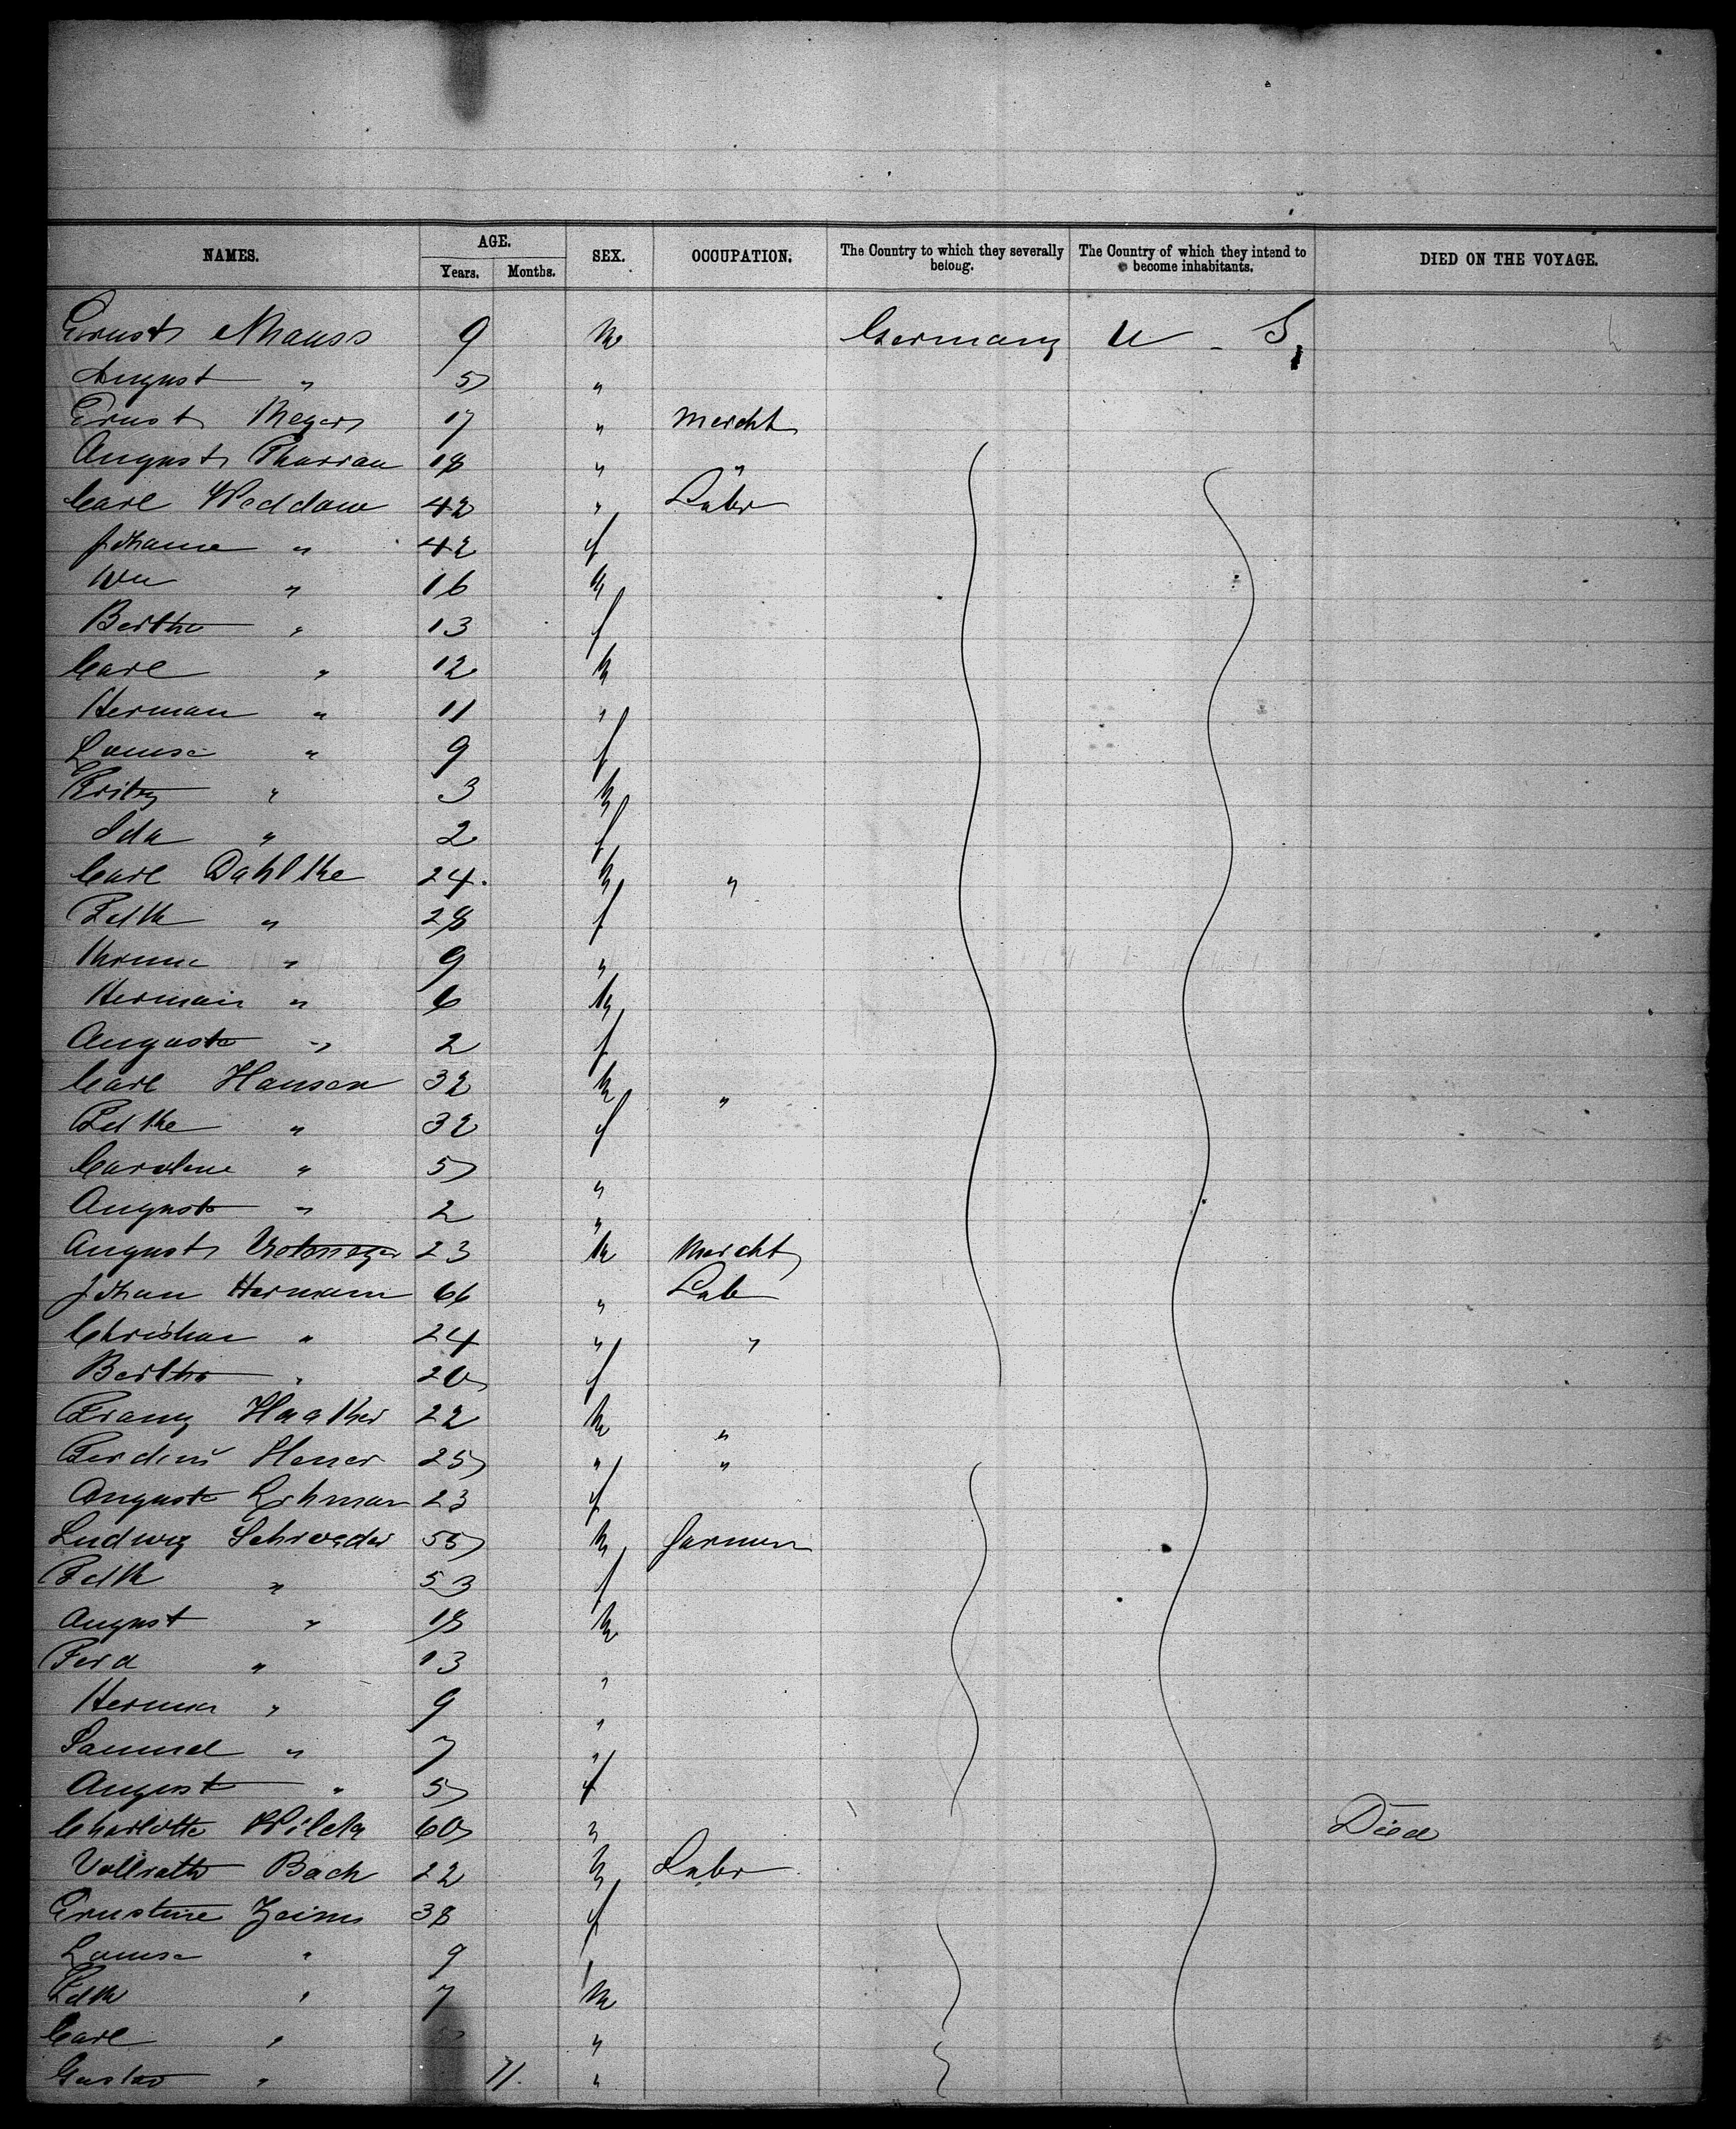 NAMES. AGE. SEX. OCCUPATION. The Country to which they severally belong. The Country of which they intend to become inhabitants. DIED ON THE VOYAGE.
Years. Months.
Ernst 9 m Germany U - S,
August " 5 "
Ernst Meyer 17 " Mercht
August 18 " "
Carl Weddow 42 " Labr
Johanne " 42 f
Wm " 16 m
Bertha " 13 f
Carl " 12 m
Herman " 11 "
Louise " 9 f
Fritz " 3 m
Ida " 2 f
Carl Dahlke 24. m "
Fdke " 28 f
" 9 "
Herman " 6 m
Auguste " 2 f
Carl Hansen 32 m "
Fdke " 32 f
Caroline " 5 "
Auguste " 2 "
August 23 m Mercht
Johan Hermann 66 " Lab
Christian " 24 " "
Bertha " 20 f
Franz Haaker 22 m "
25 " "
Auguste Lehman 23 f
Ludwig Schroeder 55 m farmer
Fdke " 53 f
August " 18 m
Ferd " 13 "
Herman " 9 "
Samuel " 7 "
August " 5 f
Charlotte Wilck 60 " Died
Vollrath Bach 22 m Labr
Ernstine 38 f
Louise " 9 "
Fdk " 7 m
Carl " "
Gustav " 11. "